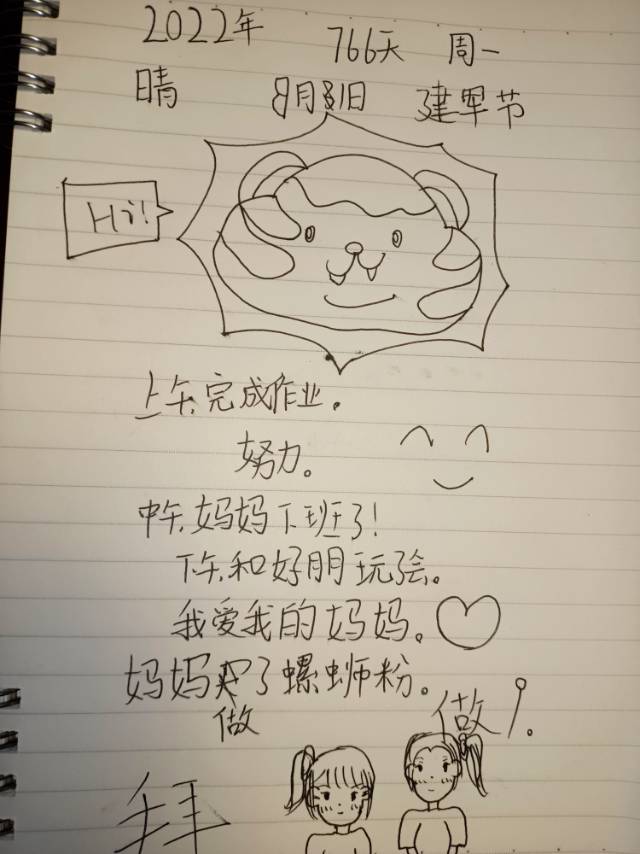 2022年 766天 周一
晴 8月1日 建军节
Hi!
上午完成作业。
努力。
中午妈妈下班了!
下午和好朋玩会。
我爱我的妈妈。
妈妈买了螺蛳粉。
做 做
拜